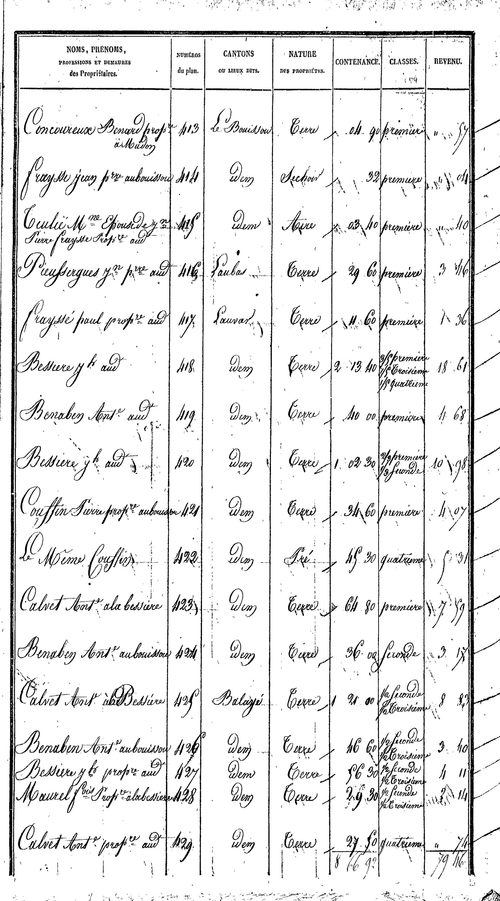 NOMS, PRÉNOMS, PROFESSIONS ET DEMEURES des Propriétaires. NUMÉROS du plan. CANTONS OU LIEUX DITS. NATURE DES PROPRIÉTÉS. CONTENANCE. CLASSES. REVENU.
Concoureux Benard propre 413 Le Bouisson Terre 04 90 première " 57
à Mudon
fraysse jean pre aubouisson 414 idem Sechoir 32 première " 04
Teulié Mme Epouse de 415 idem Aire 03 40 première " 40
Pierre fraysse Propre aud
Pieussergues pre aud 416 Laubas Terre 29 60 première 3 46
fraysse paul propre aud 417 Lauvas Terre 11 60 première 1 36
Bessiere jh aud 418 idem Terre 2 13 40 première troisième quatrième 18 61
Benaben Ant aud 419 idem Terre 40 00 première 4 68
Bessiere jh aud 420 idem Terre 1 02 30 première seconde 10 98
Couffin Pierre propre aubouisson 421 idem Terre 34 60 première 4 07
Le Même Couffin 422 idem Pré 45 30 quatrième 5 31
Calvet Ant a la bessière 423 idem Terre 64 80 première 7 59
Benaben Ant aubouisson 424 idem Terre 36 00 seconde 3 17
Calvet Ant à la Bessière 425 Terre 1 21 00 1/2 seconde 1/2 troisième 8 83
Benaben Ant aubouisson 426 idem Terre 46 60 1/2 seconde 1/2 troisième 3 40
Bessiere jh propre aud 427 idem Terre 56 30 1/2 seconde 1/2 troisième 4 11
Maurel fois Propre a la bessiere 428 idem Terre 29 30 1/2 seconde 1/2 troisième 2 14
Calvet Ant propre aud 429 idem Terre 27 50 quatrième " 74
8 66 90 79 46